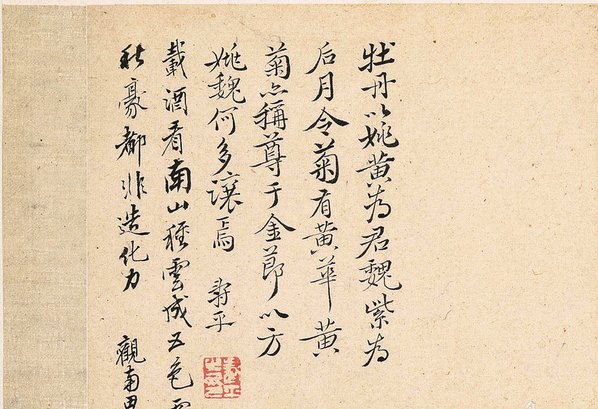 牡丹以姚黄為君魏紫為
后月令菊有黄華黄
菊亦稱尊于金莭以方
姚魏何多讓焉 壽平
載酒看南山種雲成五色
秋豪都非造化力 觀南田